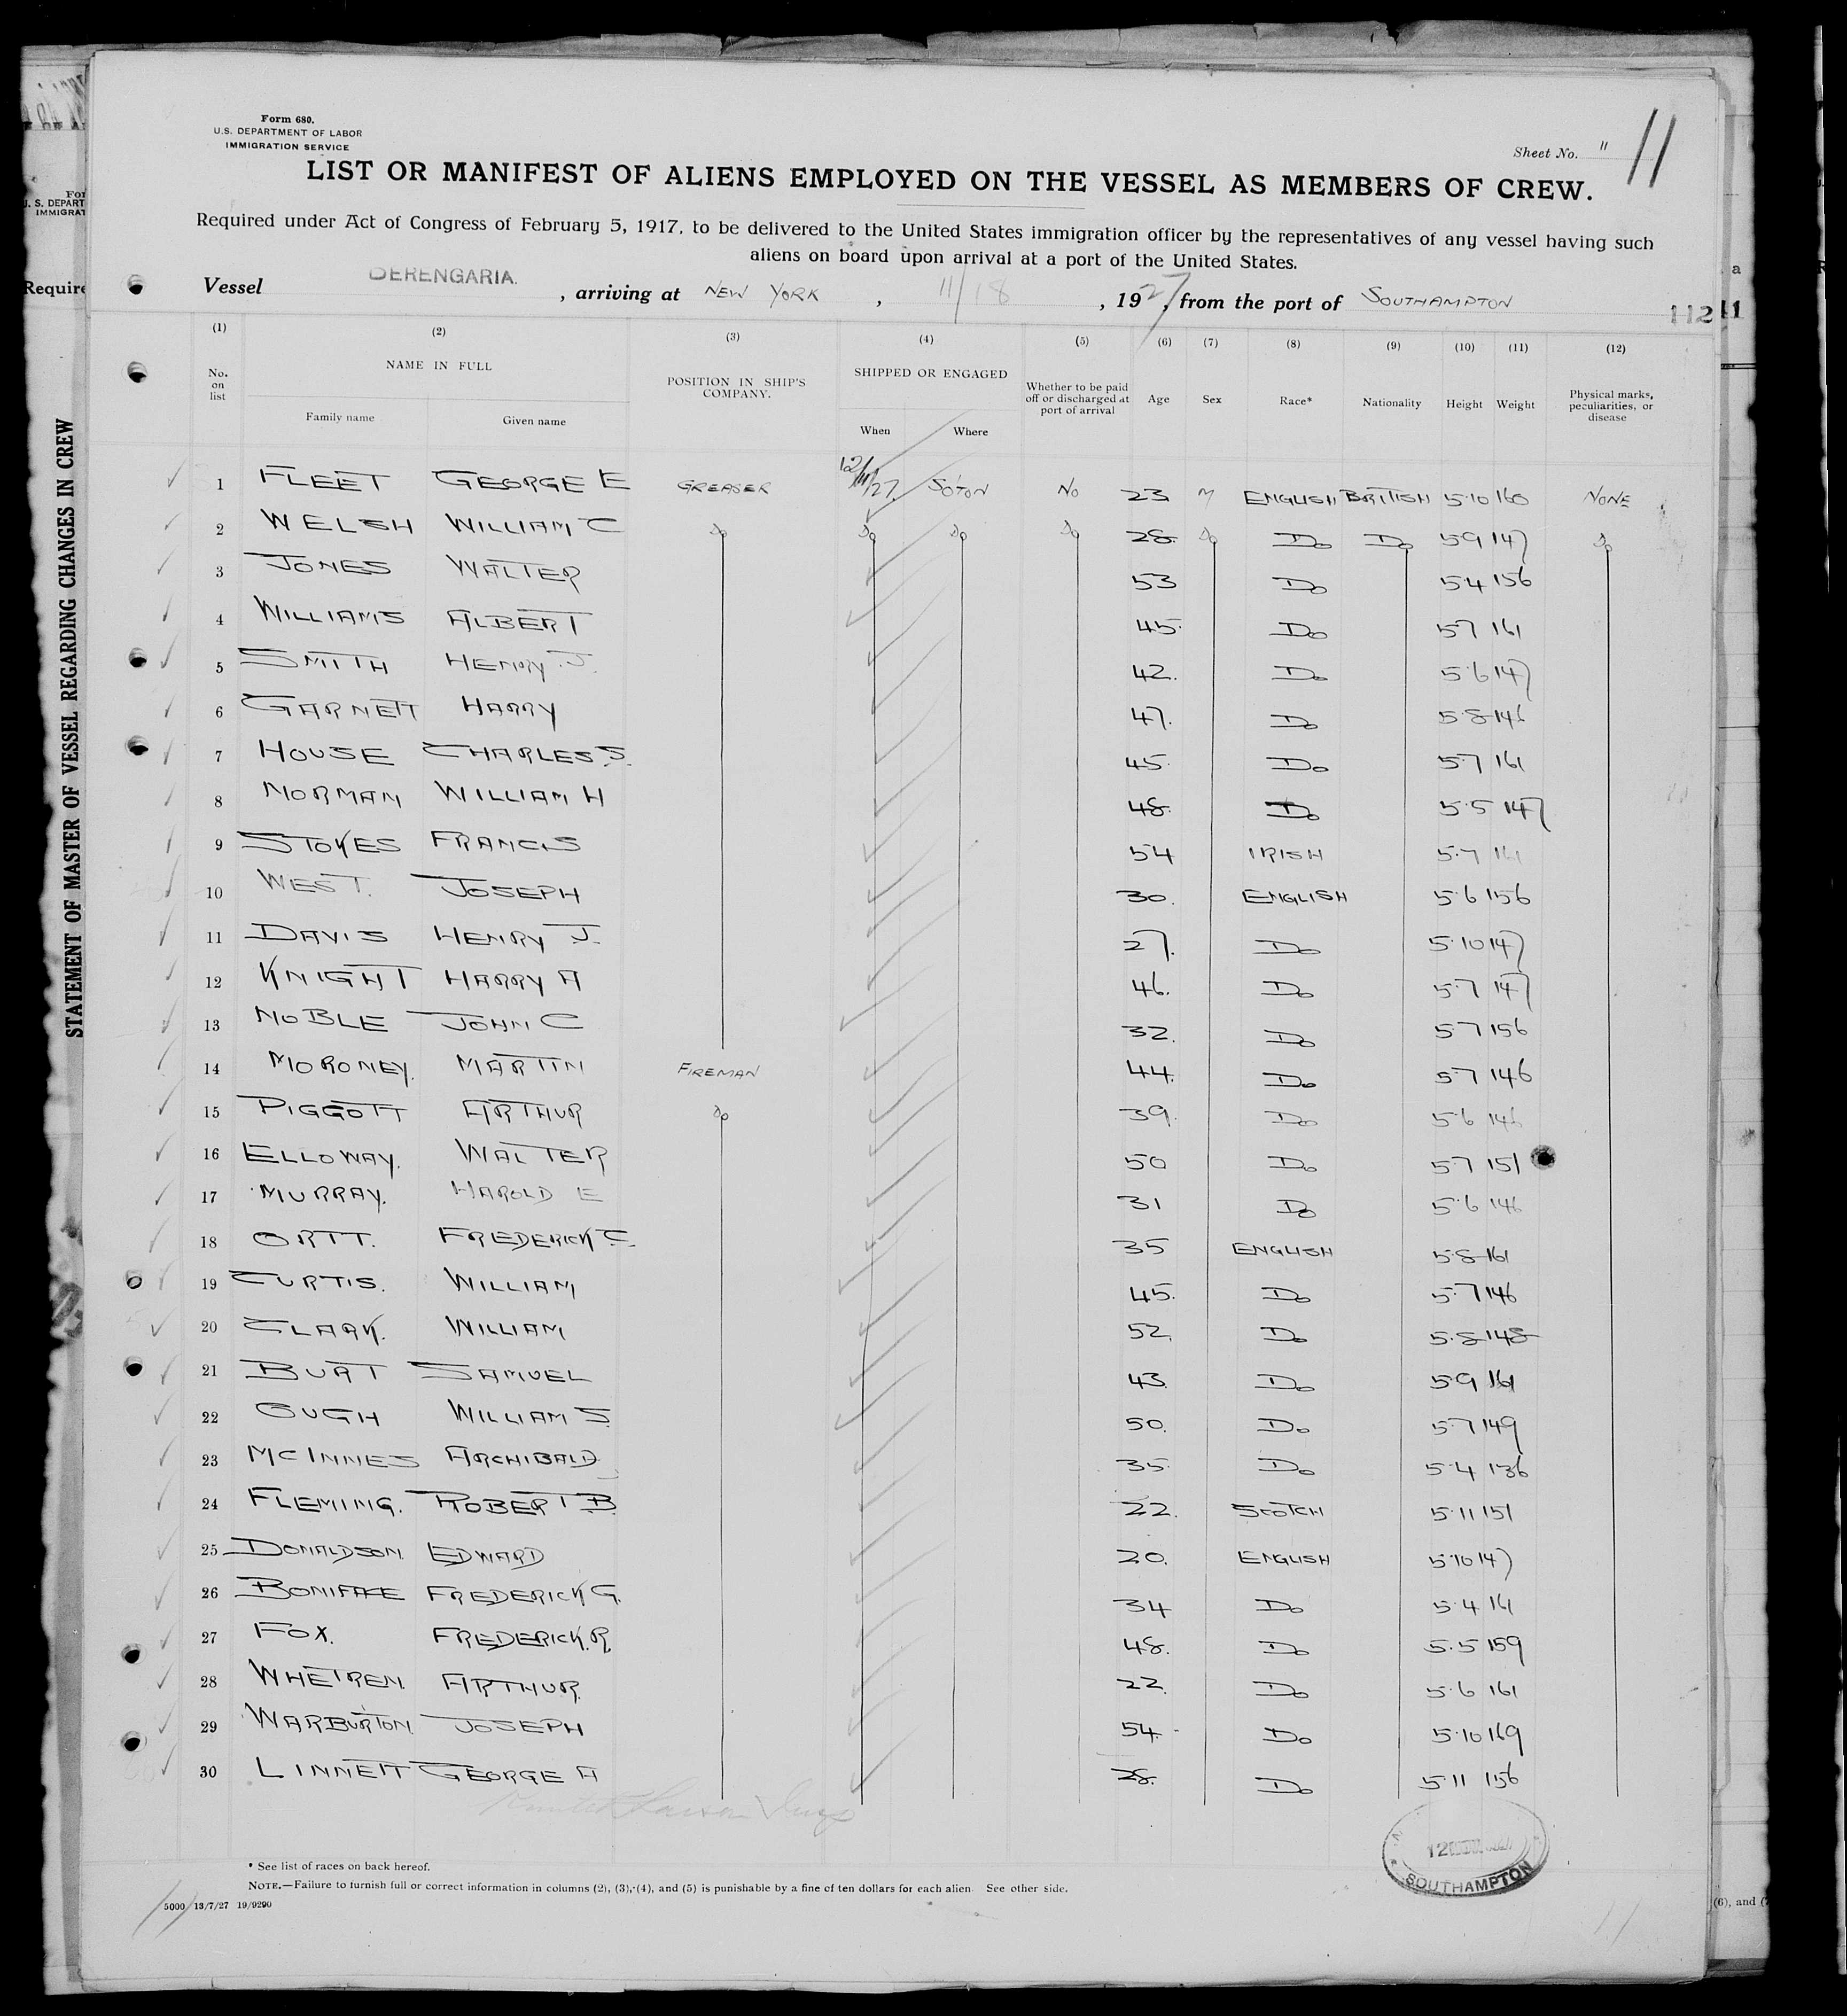 Form 680.
U.S. DEPARTMENT OF LABOR
IMMIGRATION SERVICE
Sheet No. 11
11
LIST OR MANIFEST OF ALIENS EMPLOYED ON THE VESSEL AS MEMBERS OF CREW.
Required under Act of Congress of February 5, 1917, to be delivered to the United States immigration officer by the representatives of any vessel having such
aliens on board upon arrival at a port of the United States.
Vessel BERENGARIA. , arriving at NEW YORK , 11/18 , 1927, from the port of SOUTHAMPTON
112
STATEMENT OF MASTER OF VESSEL REGARDING CHANGES IN CREW
(1) (2) (3) (4) (5) (6) (7) (8) (9) (10) (11) (12)
No. on list NAME IN FULL POSITION IN SHIP'S COMPANY. SHIPPED OR ENGAGED Whether to be paid off or discharged at port of arrival Age Sex Race* Nationality Height Weight Physical marks, peculiarities, or disease
Family name Given name When Where
1 FLEET GEORGE E GREASER 12/11/27 SO'TON NO 23 M ENGLISH BRITISH 5·10 160 NONE
2 WELSH WILLIAM C Do Do Do Do 28. Do Do Do 5·9 147 Do
3 JONES WALTER 53 Do 5·4 156
4 WILLIAMS ALBERT 45· Do 5·7 161
5 SMITH HENRY J. 42. Do 5·6 147
6 GARNETT HARRY 47. Do 5·8 146
7 HOUSE CHARLES S. 45· Do 5·7 161
8 NORMAN WILLIAM H 48. Do 5·5 147
9 STOKES FRANCIS 54 IRISH 5·7 161
10 WEST. JOSEPH 30. ENGLISH 5·6 156
11 DAVIS HENRY J. 27. Do 5·10 147
12 KNIGHT HARRY A 46. Do 5·7 147
13 NOBLE JOHN C 32. Do 5·7 156
14 MORONEY. MARTIN FIREMAN 44. Do 5·7 146
15 PIGGOTT ARTHUR Do 39. Do 5·6 146
16 ELLOWAY. WALTER 50 Do 5·7 151
17 MURRAY. HAROLD E 31 Do 5·6 146
18 ORTT. FREDERICK C. 35 ENGLISH 5·8 161
19 CURTIS. WILLIAM 45. Do 5·7 146
20 CLARK. WILLIAM 52. Do 5·8 148
21 BURT SAMUEL 43. Do 5·9 161
22 OUGH WILLIAM S. 50. Do 5·7 149
23 MCINNES ARCHIBALD 35· Do 5·4 136
24 FLEMING. ROBERT B 22. SCOTCH 5·11 151
25 DONALDSON. EDWARD 20. ENGLISH 5·10 147
26 BONIFACE FREDERICK G. 34 Do 5·4 161
27 FOX. FREDERICK. R. 48. Do 5·5 159
28 WHETREN. ARTHUR. 22. Do 5·6 161
29 WARBURTON. JOSEPH 54. Do 5·10 169
30 LINNETT GEORGE A 28. Do 5·11 156
SOUTHAMPTON
* See list of races on back hereof.
NOTE.—Failure to furnish full or correct information in columns (2), (3), (4), and (5) is punishable by a fine of ten dollars for each alien. See other side.
5000 13/7/27 19/9290